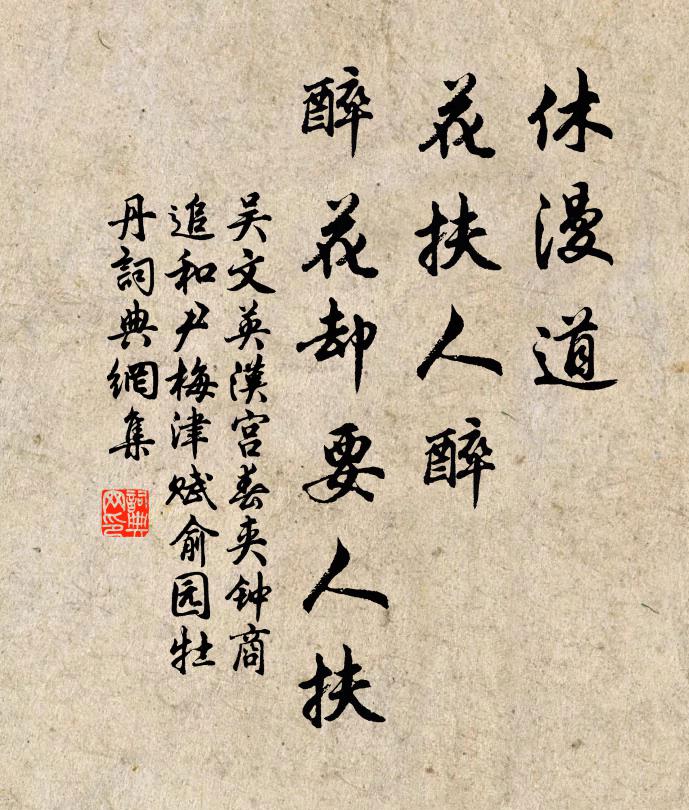 休漫道
花扶人醉
醉花却要人扶
吴文英漢宮春夾钟商
追和尹梅津赋俞园牡
丹詞典網集
詞典
网印